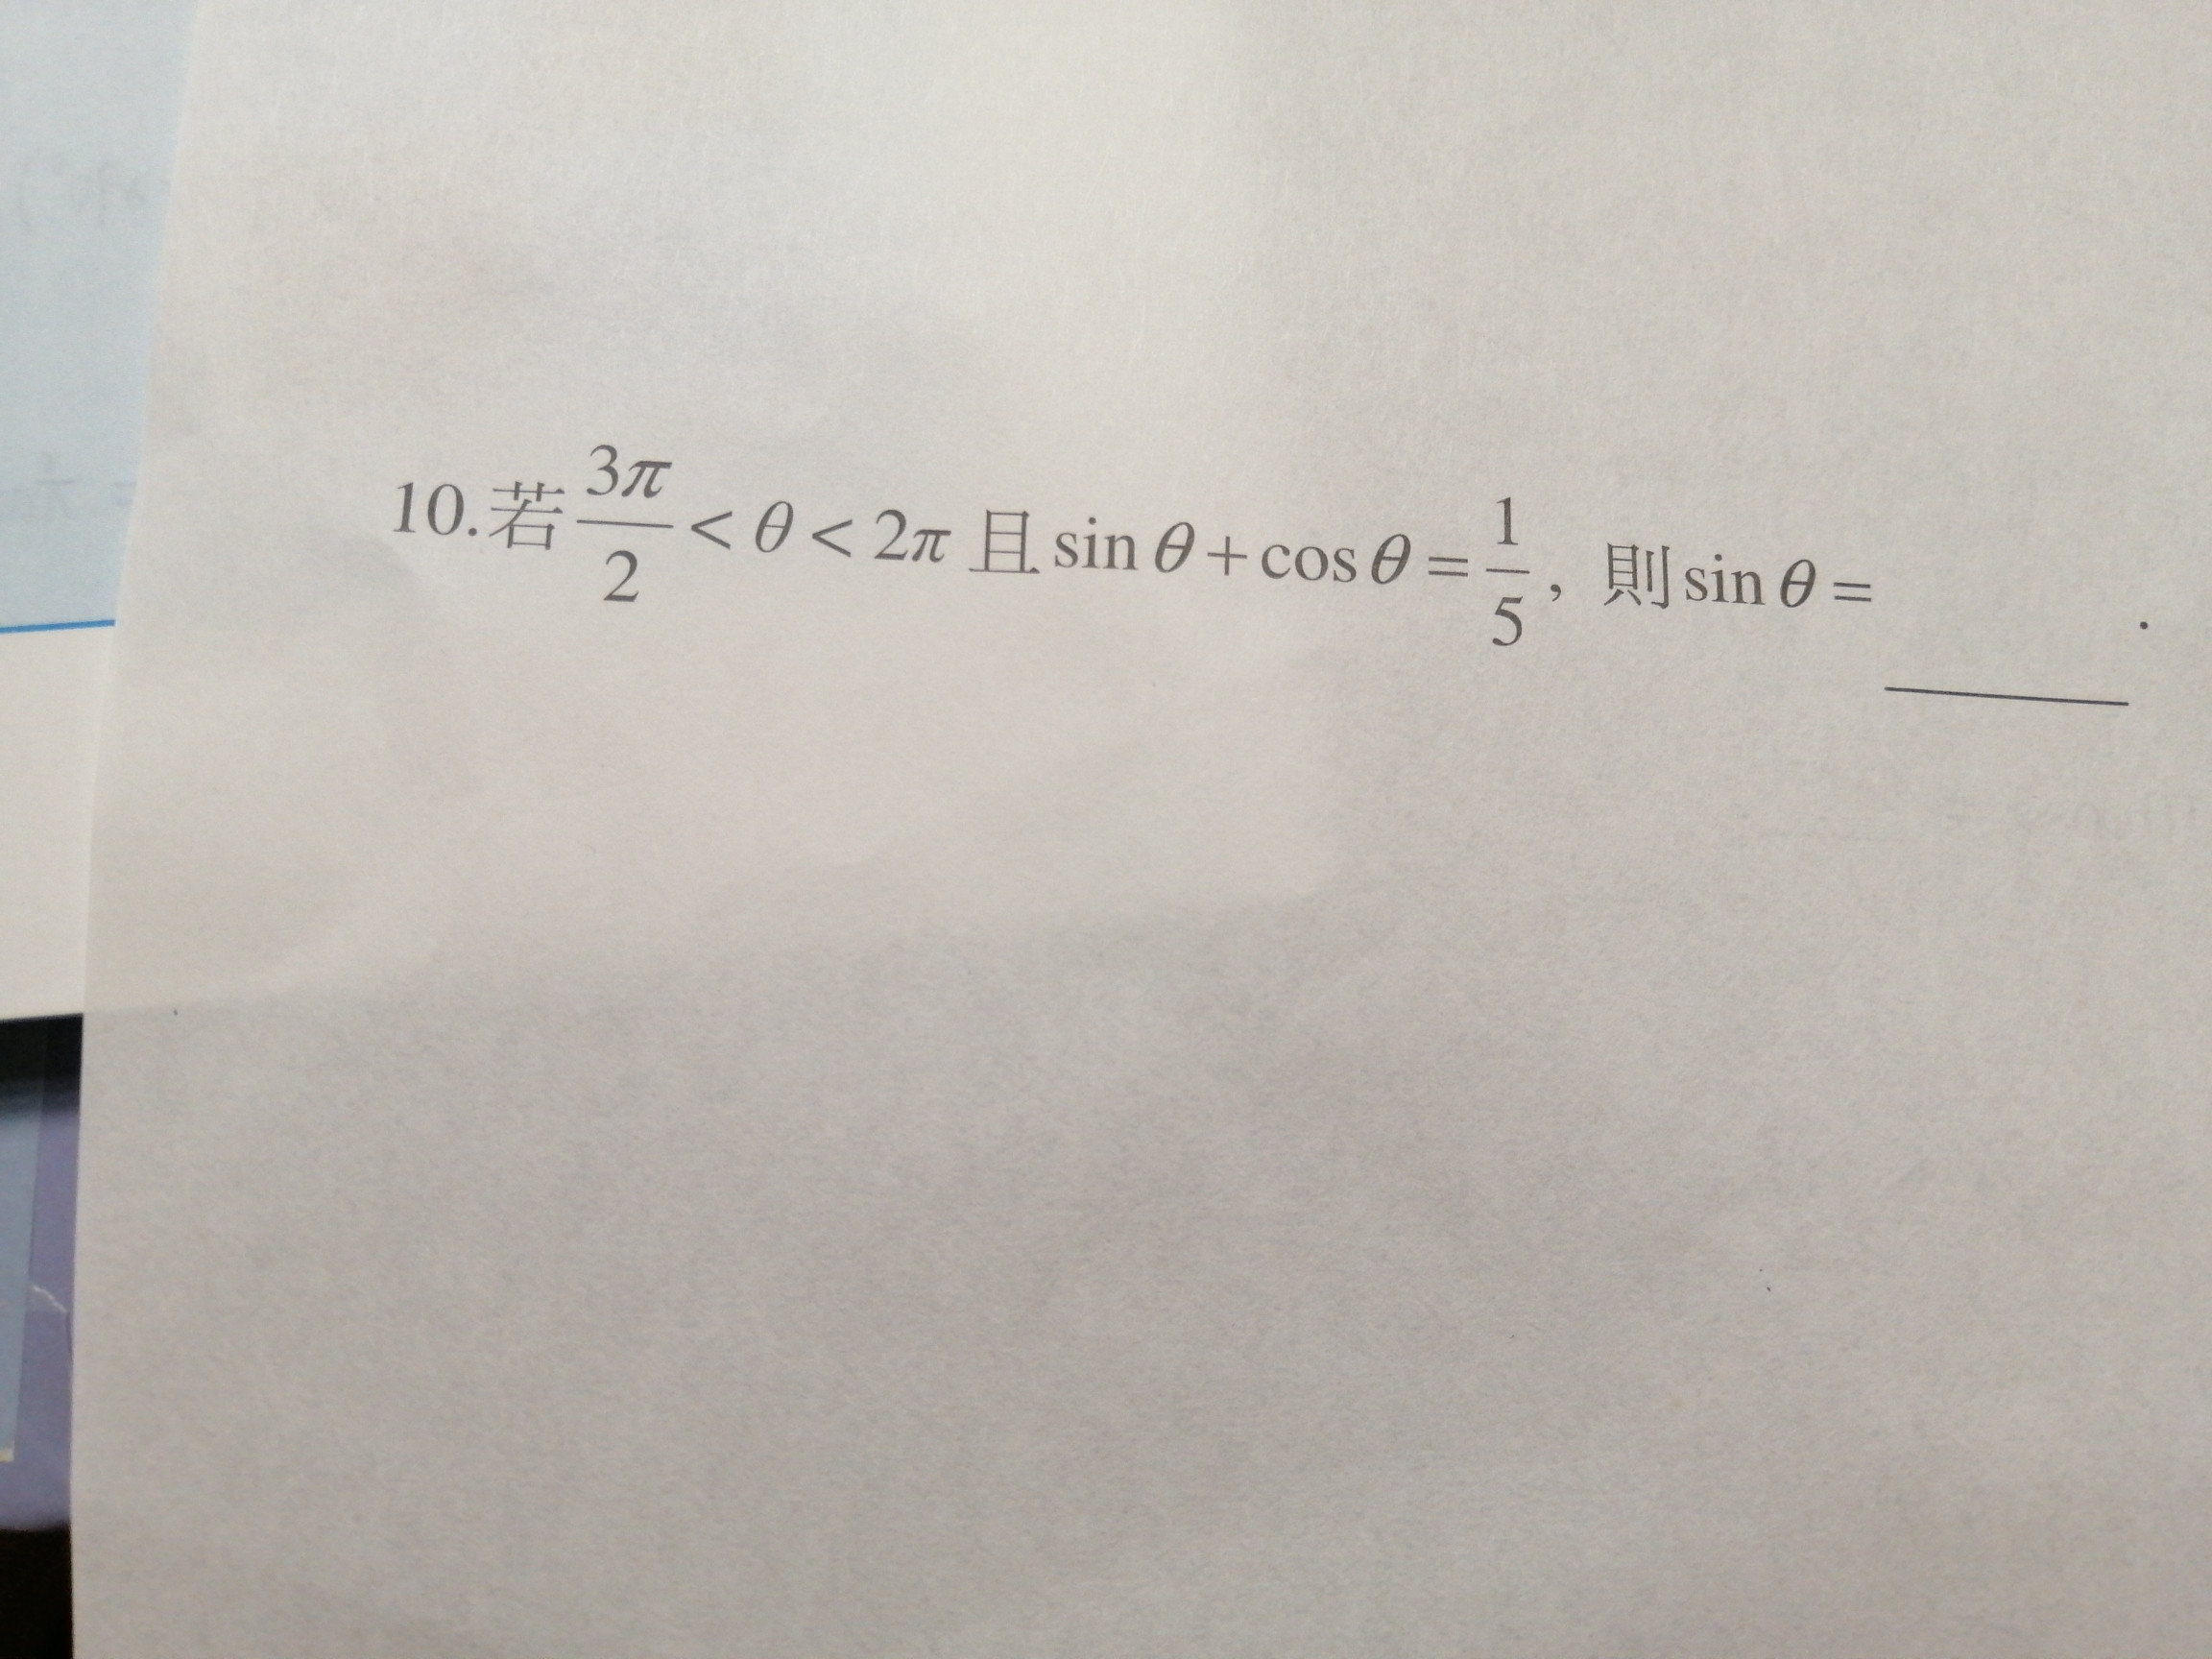 10.若 3π/2 < θ < 2π 且 sin θ + cos θ = 1/5, 則 sin θ = ______ .